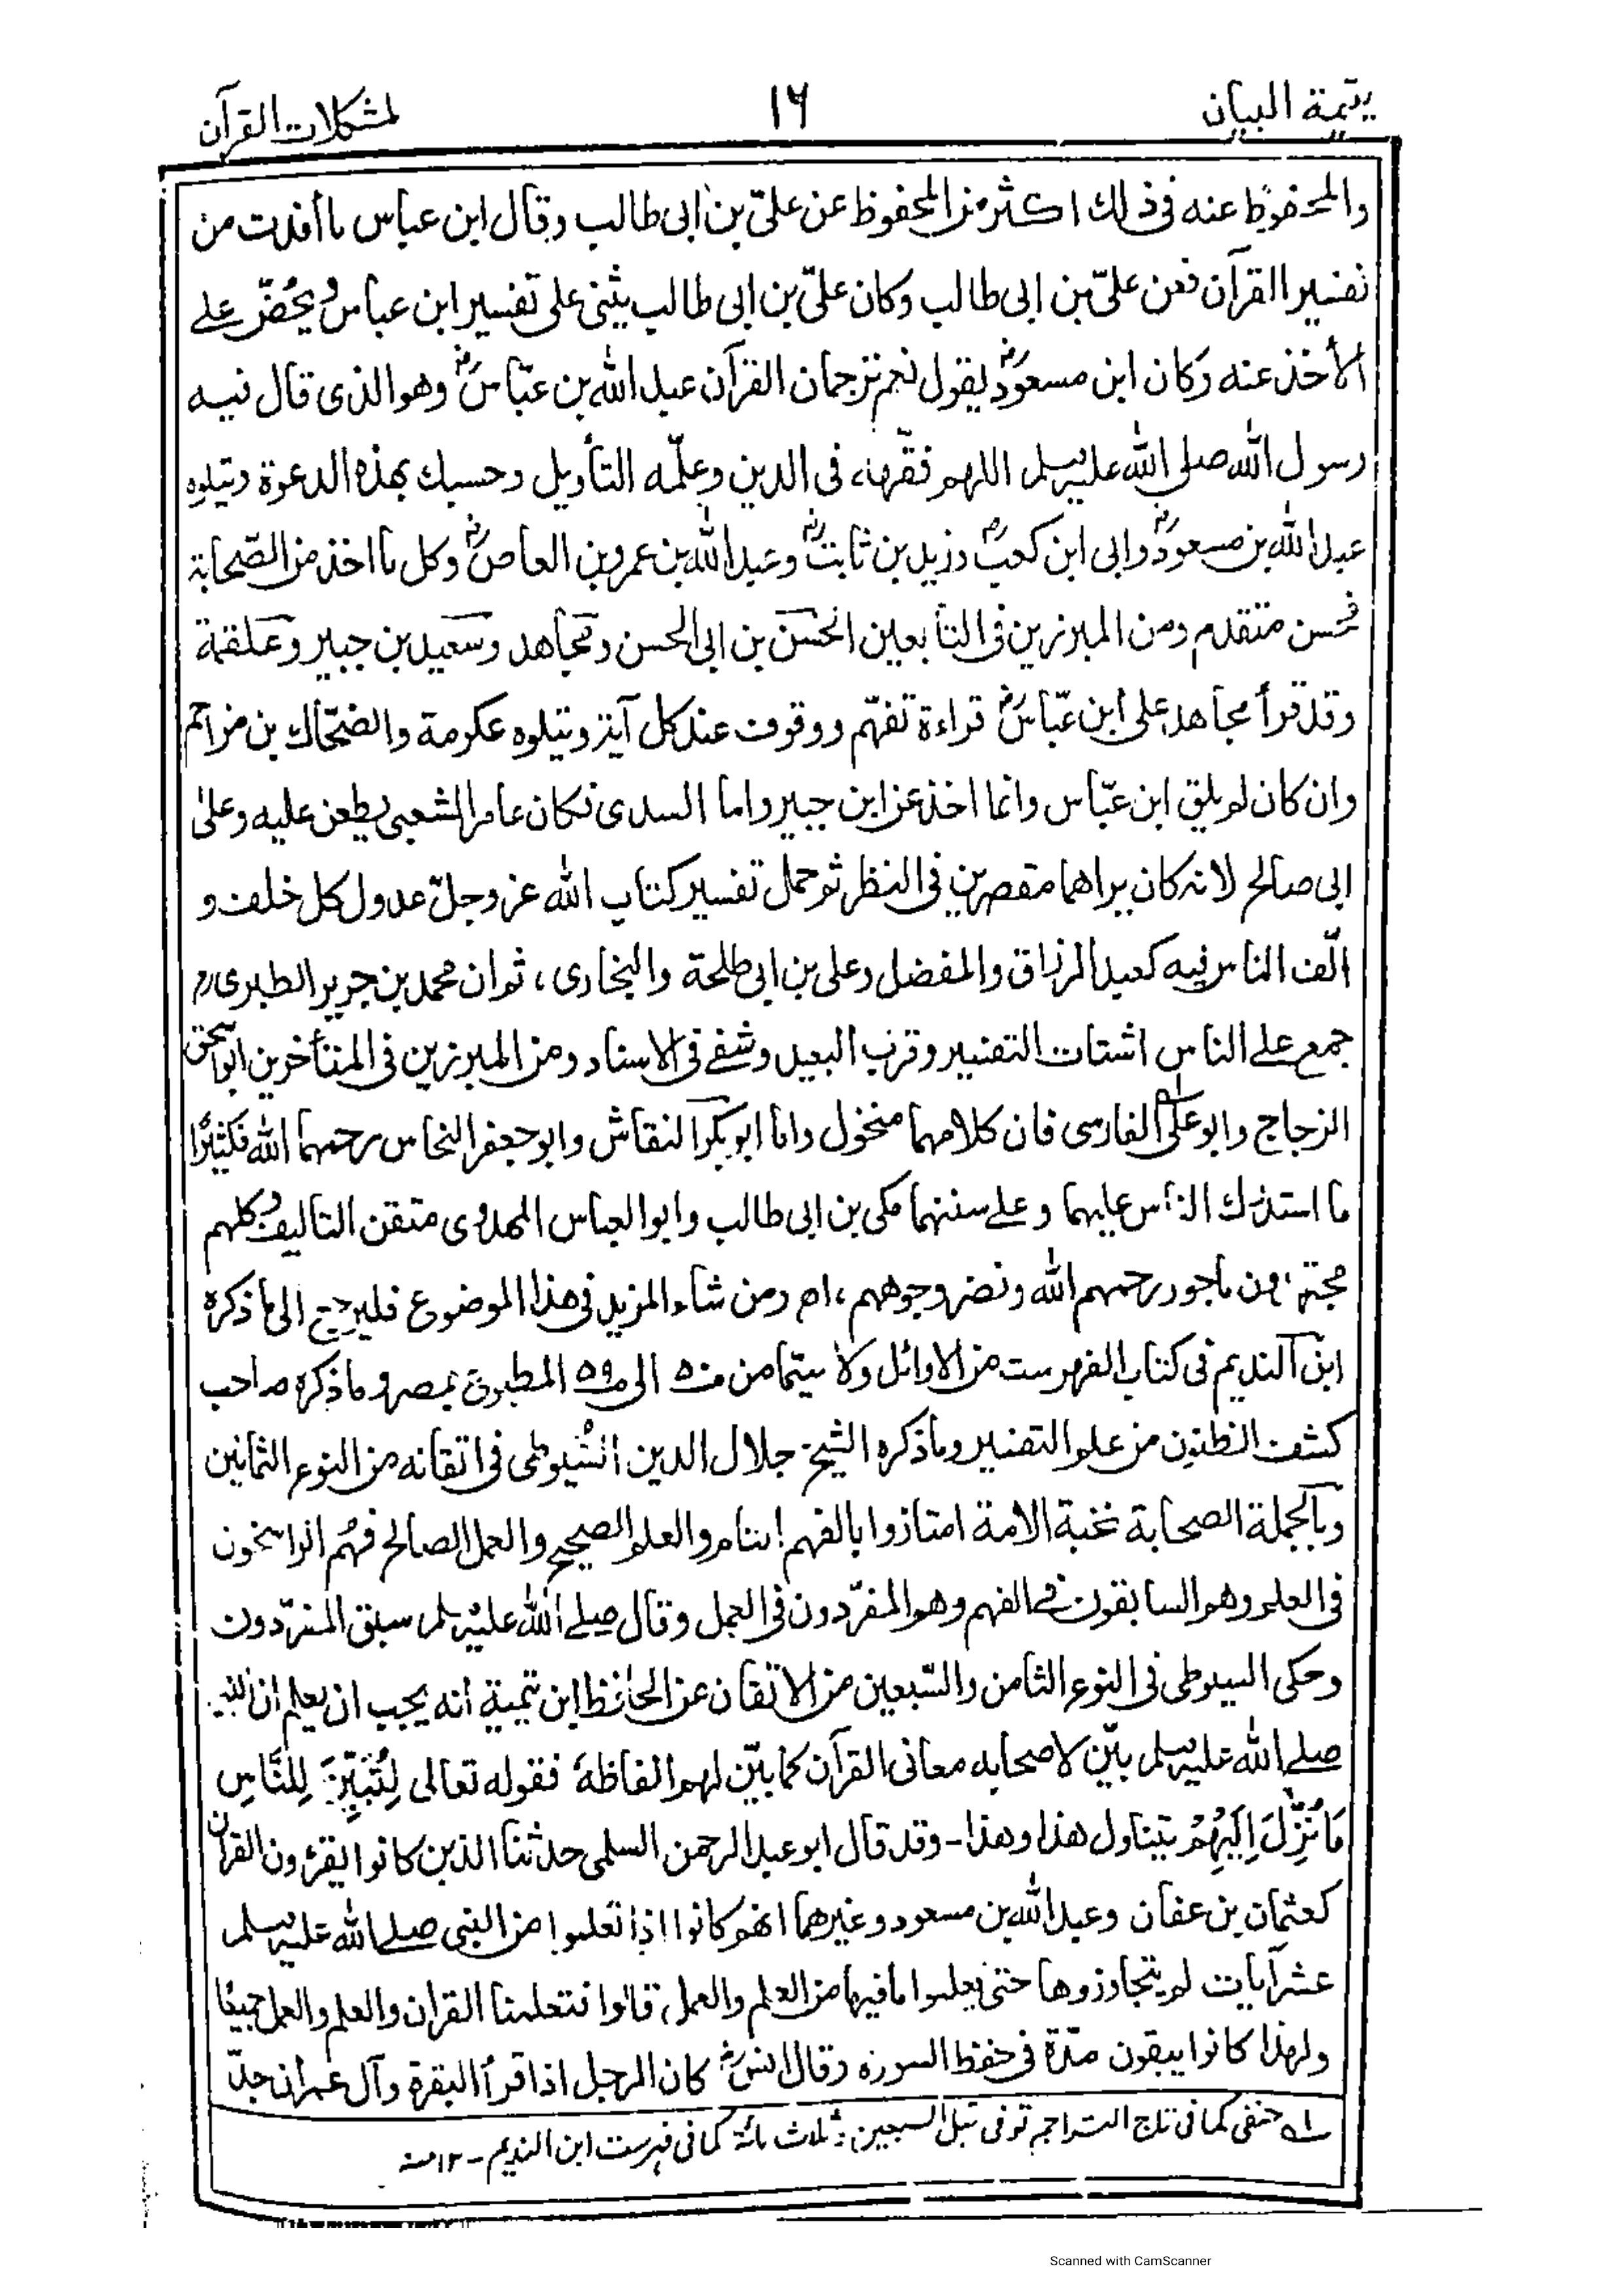 يتيمة البيان
١٦
لمشكلات القرآن
والمحفوظ عنه فى ذلك اكثر من المحفوظ عن علىّ بن ابى طالب وقال ابن عباس ما أفدت من
تفسير القرآن فعن علىّ بن ابى طالب وكان علىّ بن ابى طالب يثنى على تفسير ابن عباس ويحُضّ على
الأخذ عنه وكان ابن مسعودؓ يقول نعم ترجمان القرآن عبد الله بن عبّاسؓ وهو الذى قال فيه
رسول الله صلى الله عليه وسلم اللهم فقّهه فى الدين وعلّمه التأويل وحسبك بهذه الدعوة ويتلوه
عبد الله بن مسعودؓ وابى ابن كعبؓ وزيد بن ثابتؓ وعبد الله بن عمرو بن العاصؓ وكل ما اخذ من الصّحابة
فحسن متقدم ومن المبرزين فى التابعين الحسن بن ابى الحسن ومجاهد وسعيد بن جبير وعلقمة
وقد قرأ مجاهد على ابن عبّاسؓ قراءة تفهّم ووقوف عند كل آية ويتلوه عكرمة والضحّاك بن مزاحم
وان كان لم يلق ابن عبّاس وانما اخذ عن ابن جبير واما السدى فكان عامر الشعبى يطعن عليه وعلى
ابى صالح لانه كان يراهما مقصرين فى النظر ثم حمل تفسير كتاب الله عز وجلّ عدول كل خلف و
الّف الناس فيه كعبد الرزاق والمفضل وعلى بن ابى طلحة والبخارى، ثم ان محمد بن جرير الطبرى رح
جمع على الناس اشتات التفسير وقرب البعيد وشفى فى الاسناد ومن المبرزين فى المتأخرين ابو اسحق
الزجاج وابو على الفارسى فان كلامهما منخول واما ابو بكر النقاش وابو جعفر النحاس رحمهما الله فكثيرًا
ما استدرك الناس عليهما وعلى سننهما مكى بن ابى طالب وابو العباس المهدوى متقن التاليف وكلهم
مجتهد مأجور رحمهم الله ونضر وجوههم، اھ ومن شاء المزيد فى هذا الموضوع فليرجع الى ما ذكره
ابن النديم فى كتاب الفهرست من الاوائل ولا سيّما من صـ٥٠ الى صـ٥٩ المطبوع بمصر وما ذكره صاحب
كشف الظنون من علم التفسير وما ذكره الشيخ جلال الدين السُّيوطى فى اتقانه من النوع الثمانين
وبالجملة الصحابة نخبة الامة امتازوا بالفهم التام والعلم الصحيح والعمل الصالح فهُم الراسخون
فى العلم وهم السابقون فى الفهم وهم المفرّدون فى العمل وقال صلى الله عليه وسلم سبق المفرّدون
وحكى السيوطى فى النوع الثامن والسّبعين من الاتقان عن الحافظ ابن تيمية انه يجب ان يعلم ان النبى
صلى الله عليه وسلم بيّن لاصحابه معانى القرآن كما بيّن لهم الفاظهٗ فقوله تعالى لِتُبَيِّنَ لِلنَّاسِ
مَا نُزِّلَ اِلَيْهِمْ يتناول هذا وهذا- وقد قال ابو عبد الرحمن السلمى حدثنا الذين كانوا يقرؤون القرآن
كعثمان بن عفان وعبد الله بن مسعود وغيرهما انهم كانوا اذا تعلموا من النبى صلى الله عليه وسلم
عشر آيات لم يتجاوزوها حتى يعلموا ما فيها من العلم والعمل، قالوا فتعلمنا القرآن والعلم والعمل جميعًا
ولهذا كانوا يبقون مدّة فى حفظ السورة وقال انسؓ كان الرجل اذا قرأ البقرة وآل عمران جدّ
لـه حنفى كما فى تاج التراجم توفى قبل السبعين وثلاث مائة كما فى فهرست ابن النديم - ١٢ منه
Scanned with CamScanner